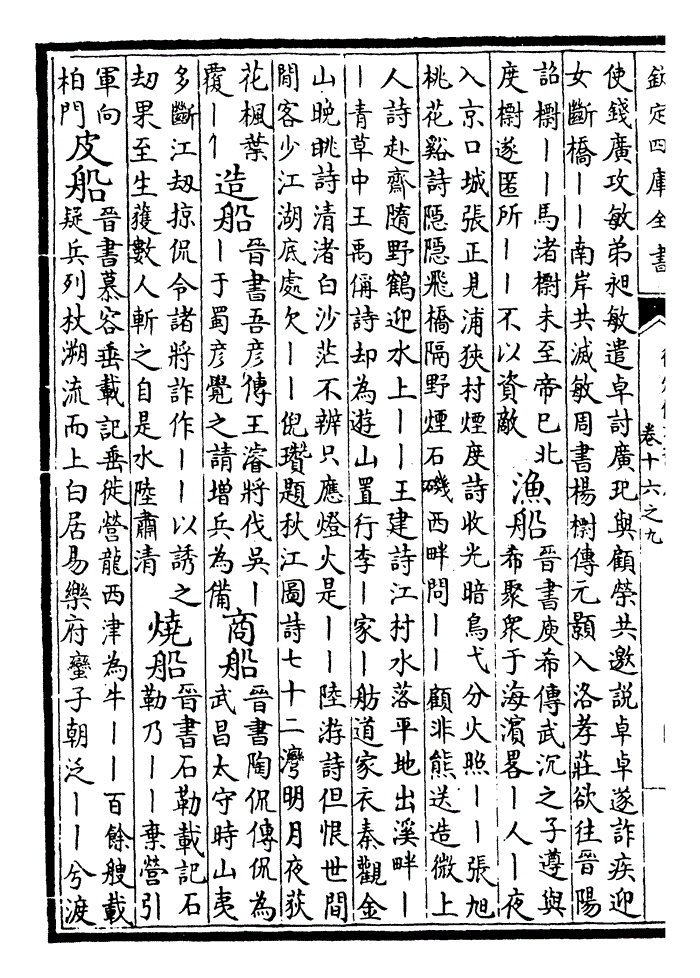 欽定四庫全書
卷十六之九
使錢廣攻敏弟昶敏遣卓討廣玘與顧榮共邀說卓卓遂詐疾迎
女斷橋丨丨南岸共滅敏周書楊㯹傳元顥入洛孝莊欲往晉陽
詔㯹丨丨馬渚㯹未至帝已北
度㯹遂匿所丨丨不以資敵
漁船
晉書庾希傳武沉之子遵與
希聚衆于海濱畧丨人丨夜
入京口城張正見浦狹村煙度詩收光暗鳥弋分火照丨丨張旭
桃花谿詩隱隱飛橋隔野煙石磯西畔問丨丨顧非熊送造微上
人詩赴齋隨野鶴迎水上丨丨王建詩江村水落平地出溪畔丨
丨青草中王禹偁詩却為遊山置行李丨家丨舫道家衣秦觀金
山晚眺詩清渚白沙茫不辨只應燈火是丨丨陸游詩但恨世間
閒客少江湖底處欠丨丨倪瓚題秋江圖詩七十二灣明月夜荻
花楓葉
覆丨丨
造船
晉書吾彥傳王濬將伐吳丨
丨于蜀彥覺之請增兵為備
商船
晉書陶侃傳侃為
武昌太守時山夷
多斷江刼掠侃令諸將詐作丨丨以誘之
刼果至生獲數人斬之自是水陸肅清
燒船
晉書石勒載記石
勒乃丨丨棄營引
軍向
柏門
皮船
晉書慕容垂載記垂徙營龍西津為牛丨丨百餘艘載
疑兵列杖溯流而上白居易樂府蠻子朝泛丨丨兮渡